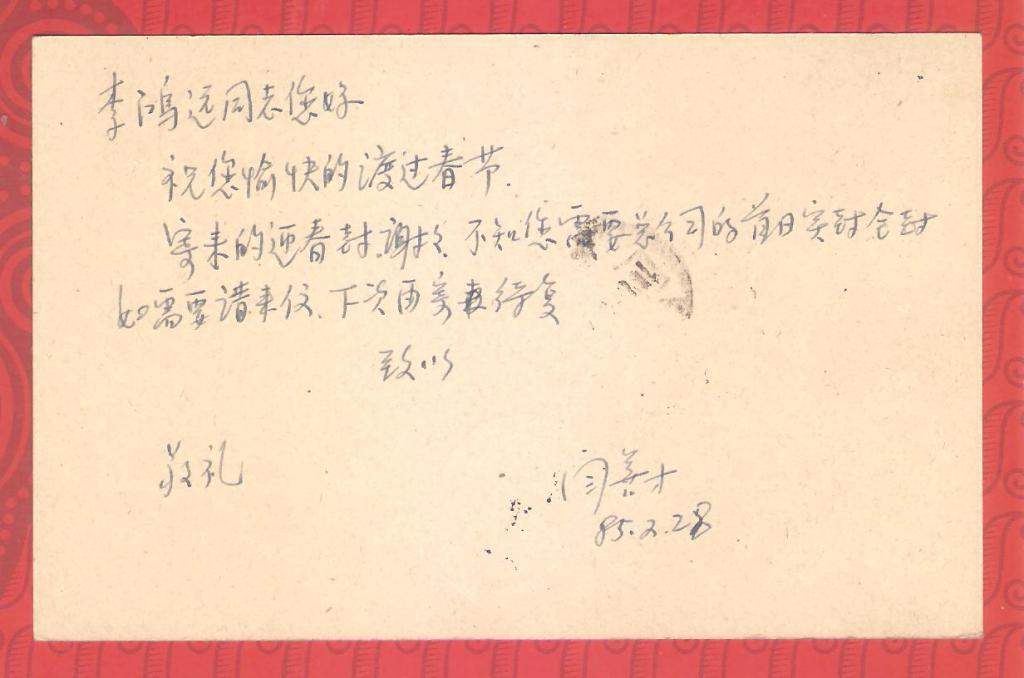 李鸿远同志您好
祝您愉快的渡过春节.
寄来的迎春封.谢收. 不知您需要总公司的首日实封全封
如需要请来信、下次再寄 待复
致以
敬礼
闫善才
85.2.28